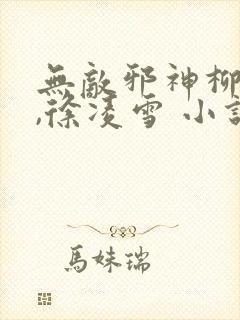 無敵邪神柳
,徐凌雪 小
馬妹瑞